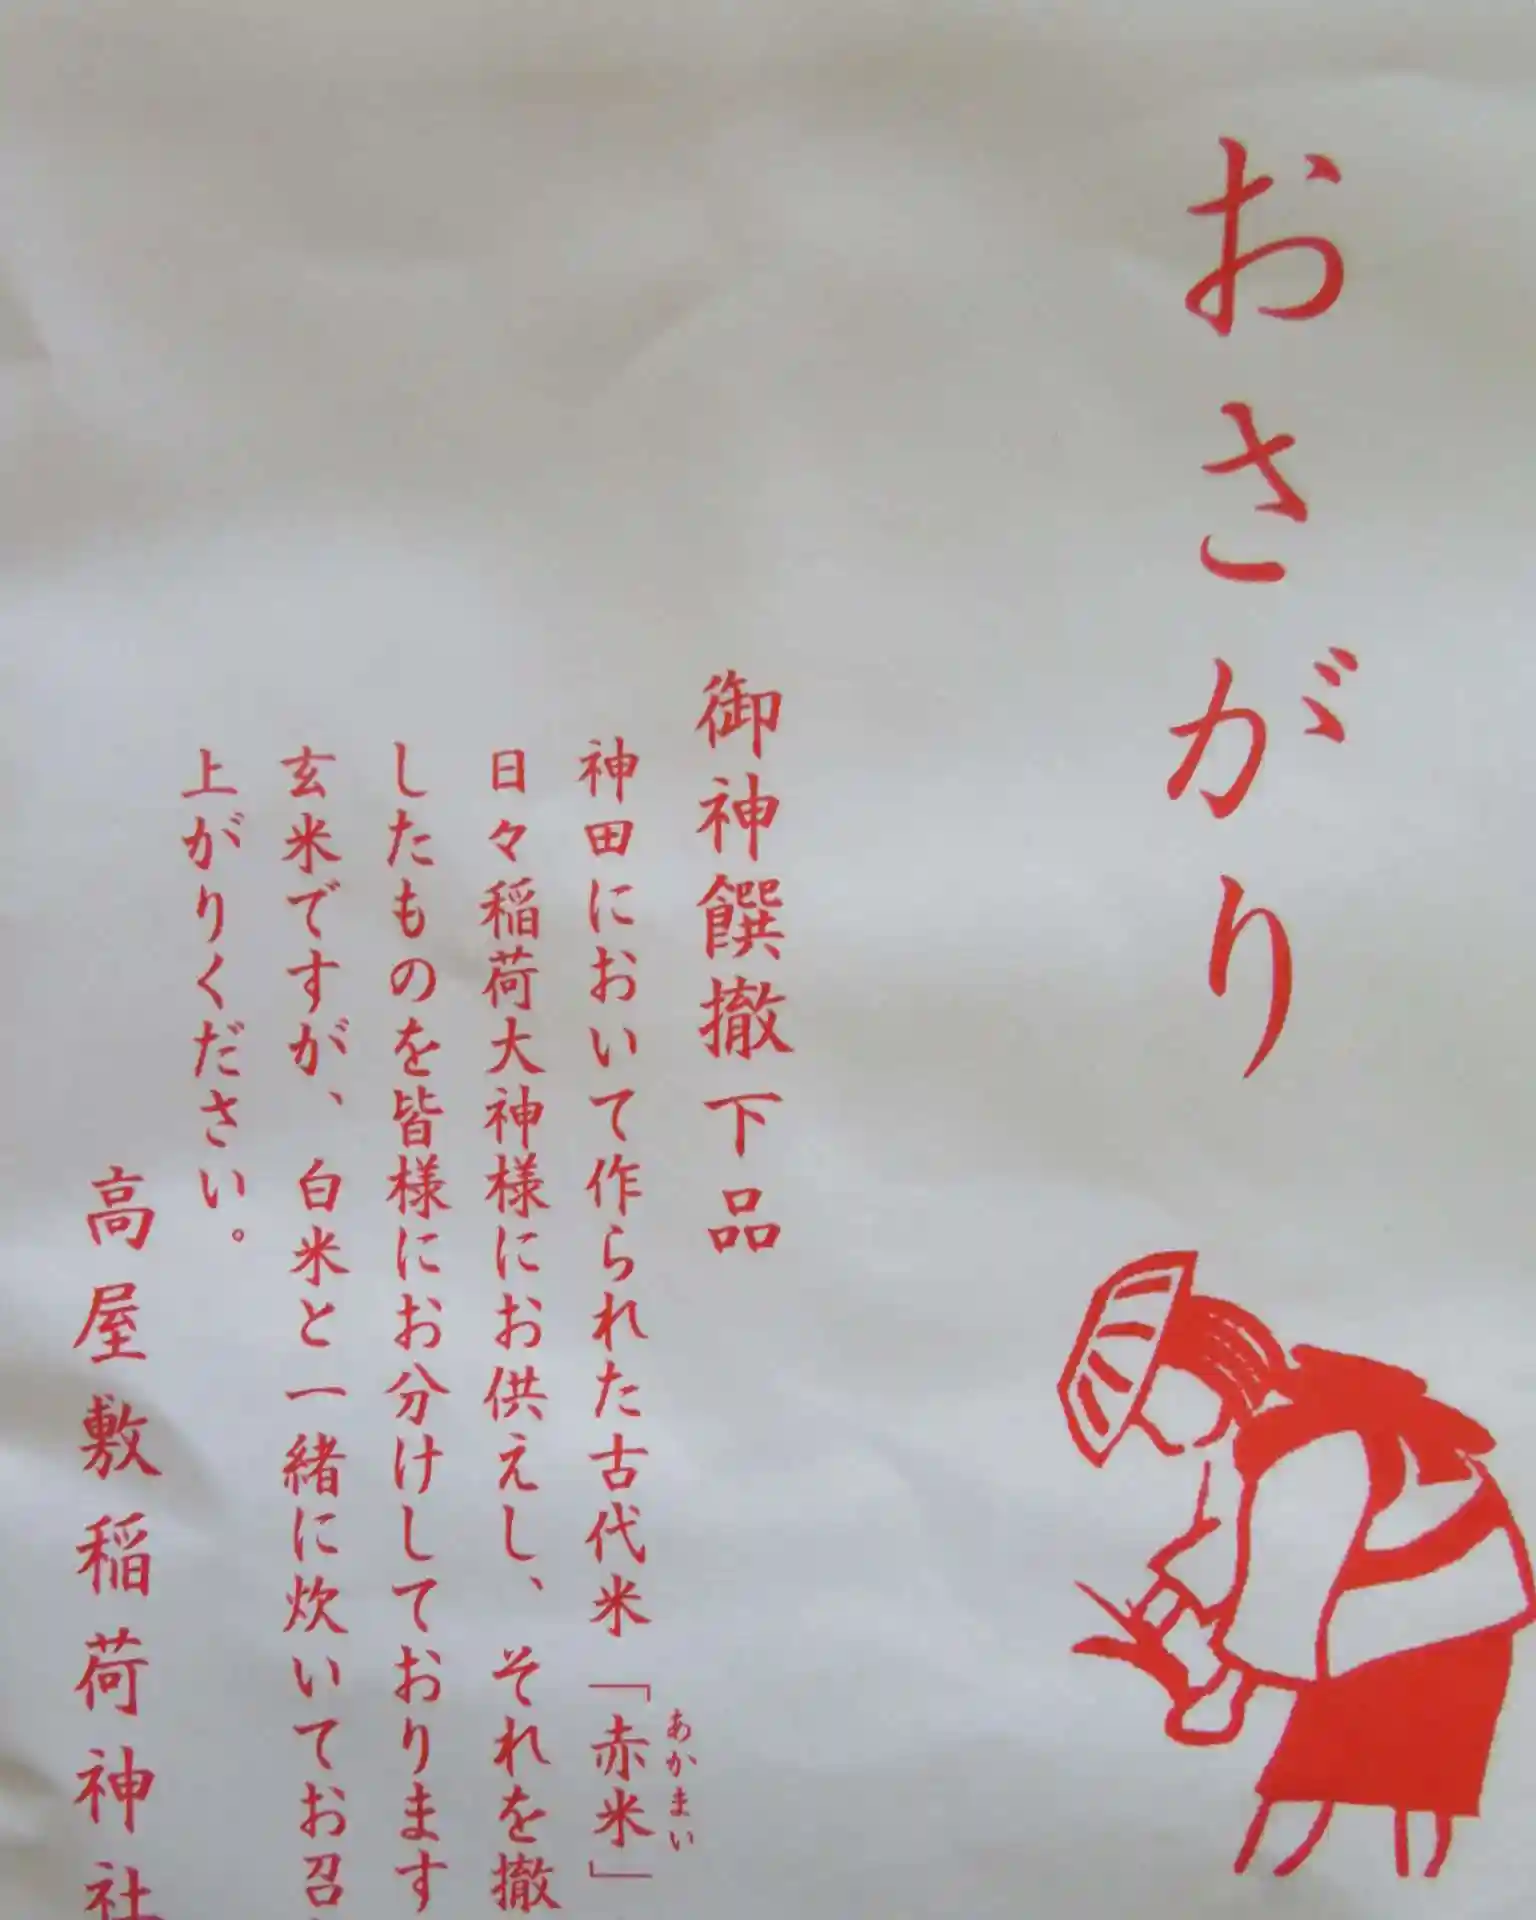 おさがり
御神饌撤下品
神田において作られた古代米「赤米」
あかまい
日々稲荷大神様にお供えし、それを撤
したものを皆様にお分けしております
玄米ですが、白米と一緒に炊いてお召
上がりください。
高屋敷稲荷神社